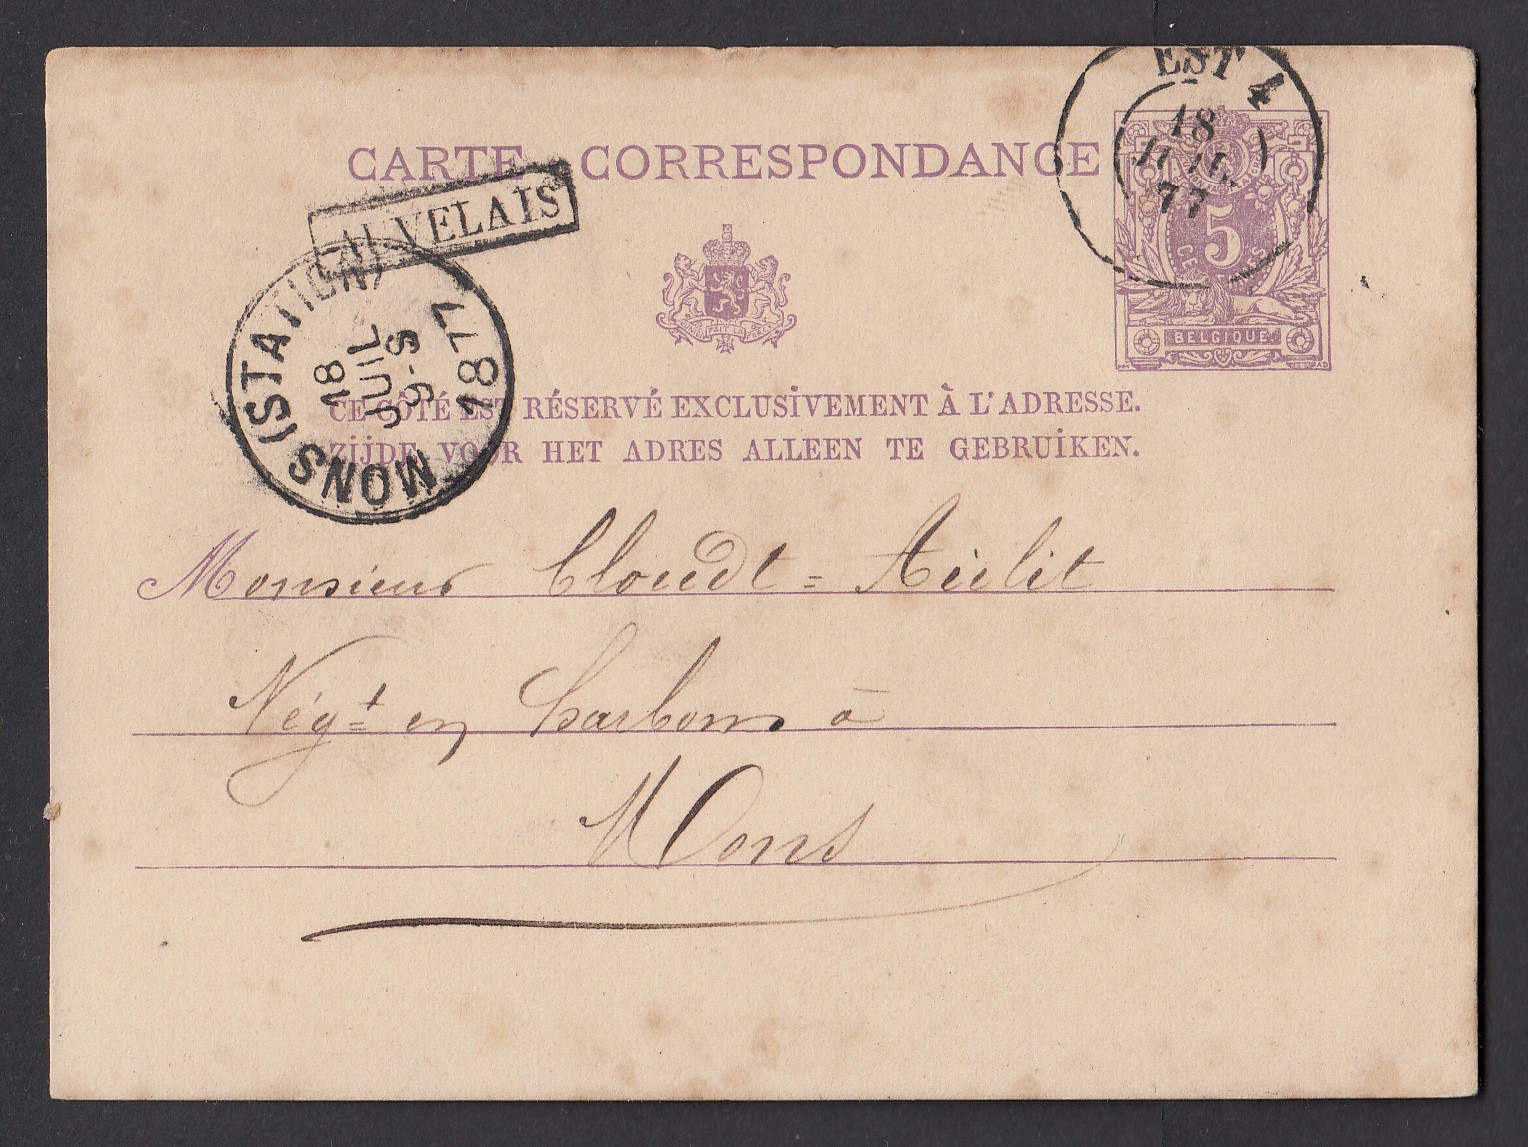 EST 4
18
JUIL
77
CARTE CORRESPONDANCE
AUVELAIS
5
BELGIQUE
MONS (STATION)
18
JUIL
9-S
1877
CE CÔTÉ EST RÉSERVÉ EXCLUSIVEMENT À L'ADRESSE.
ZIJDE VOOR HET ADRES ALLEEN TE GEBRUIKEN.
Monsieur Cloudt =
Négt en Charbons à
Mons